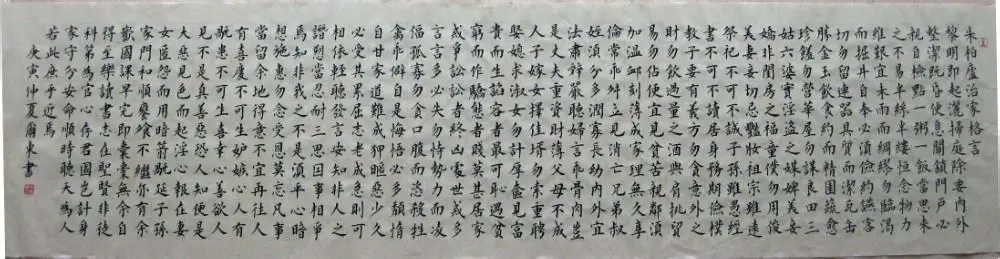 朱柏廬治家格言
黎明即起灑掃庭除要內外
整潔既昏便息關鎖門戶必
親自檢點一粥一飯當思來
處不易半絲半縷恒念物力
維艱宜未雨而綢繆毋臨渴
而掘井自奉必須儉約讌客
切勿留連器具質而潔瓦缶
勝金玉飲食約而精園蔬愈
珍饈勿營華屋勿謀良田三
姑六婆實淫盜之媒婢美妾
嬌非閨房之福童僕勿用俊
美妻妾切忌艷妝祖宗雖遠
祭祀不可不誠子孫雖愚經
書不可不讀居身務期儉樸
教子要有義方勿貪意外之
財勿飲過量之酒與肩挑貿
易勿佔便宜見貧苦親鄰須
加溫卹刻薄成家理無久享
倫常乖舛立見消亡兄弟叔
姪須分多潤寡長幼內外宜
法肅辭嚴聽婦言乖骨肉豈
是丈夫重資財薄父母不成
人子嫁女擇佳壻勿索重聘
娶媳求淑女勿計厚奩見富
貴而生諂容者最可恥遇貧
窮而作驕態者賤莫甚居家
戒爭訟訟者終凶處世戒多
言言多必失勿恃勢力而凌
偪孤寡勿貪口腹而恣殺牲
禽乖僻自是悔悟必多頹惰
自甘家道難成狎暱惡少久
必受其累屈志老成急則可
相依輕聽發言安知非人之
譖愬當忍耐三思因事相爭
焉知非我之不是須平心暗
想施惠勿念受恩莫忘凡事
當留餘地得意不宜再往人
有喜慶不可生妒嫉心人有
禍患不可生喜幸心善欲人
見不是真善惡恐人知便是
大惡見色而起淫心報在妻
女匿怨而用暗箭禍延子孫
家門和順雖饔飧不繼亦有餘
歡國課早完即囊橐無餘自
得至樂讀書志在聖賢非徒
科第為官心存君國豈計身
家守分安命順時聽天為人
若此庶乎近焉
庚寅仲夏爾東書